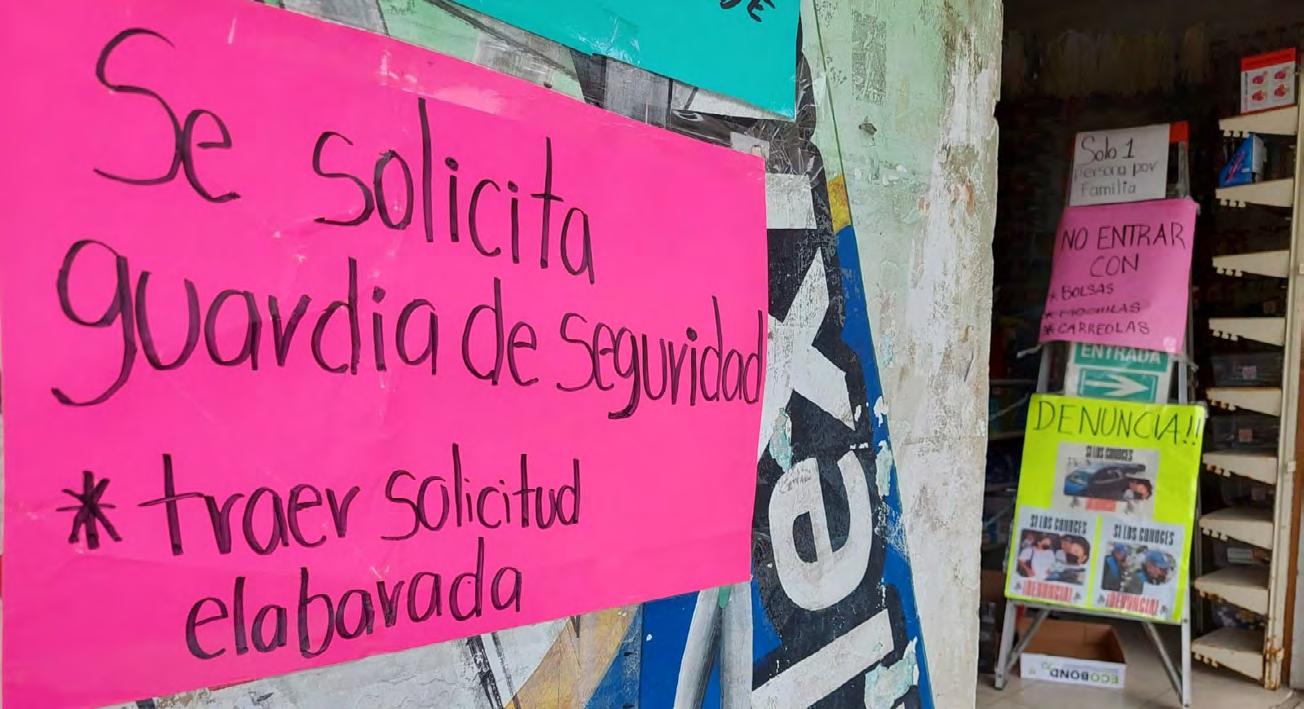 Se solicita
guardia de seguridad
* traer solicitud
elabarada
lex
Solo 1
persona por
Familia
NO ENTRAR
CON
* BOLSAS
* MOCHILAS
* CARREOLAS
ENTRADA
DENUNCIA!!
SI LOS CONOCES
SI LOS CONOCES
¡DENUNCIA!
SI LOS CONOCES
¡DENUNCIA!
ECOBOND